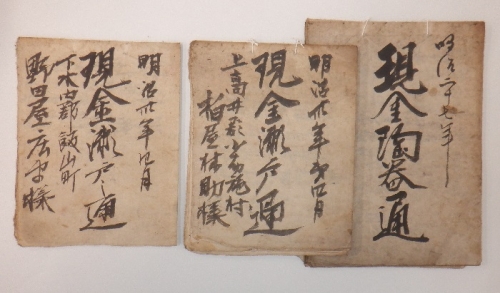 明治二十七年
現金陶器通
明治卅年第四月
現金瀬戸通
上高井郡小布施村
柏屋林助様
明治卅年四月
現金瀬戸通
下水内郡飯山町
野田屋
様